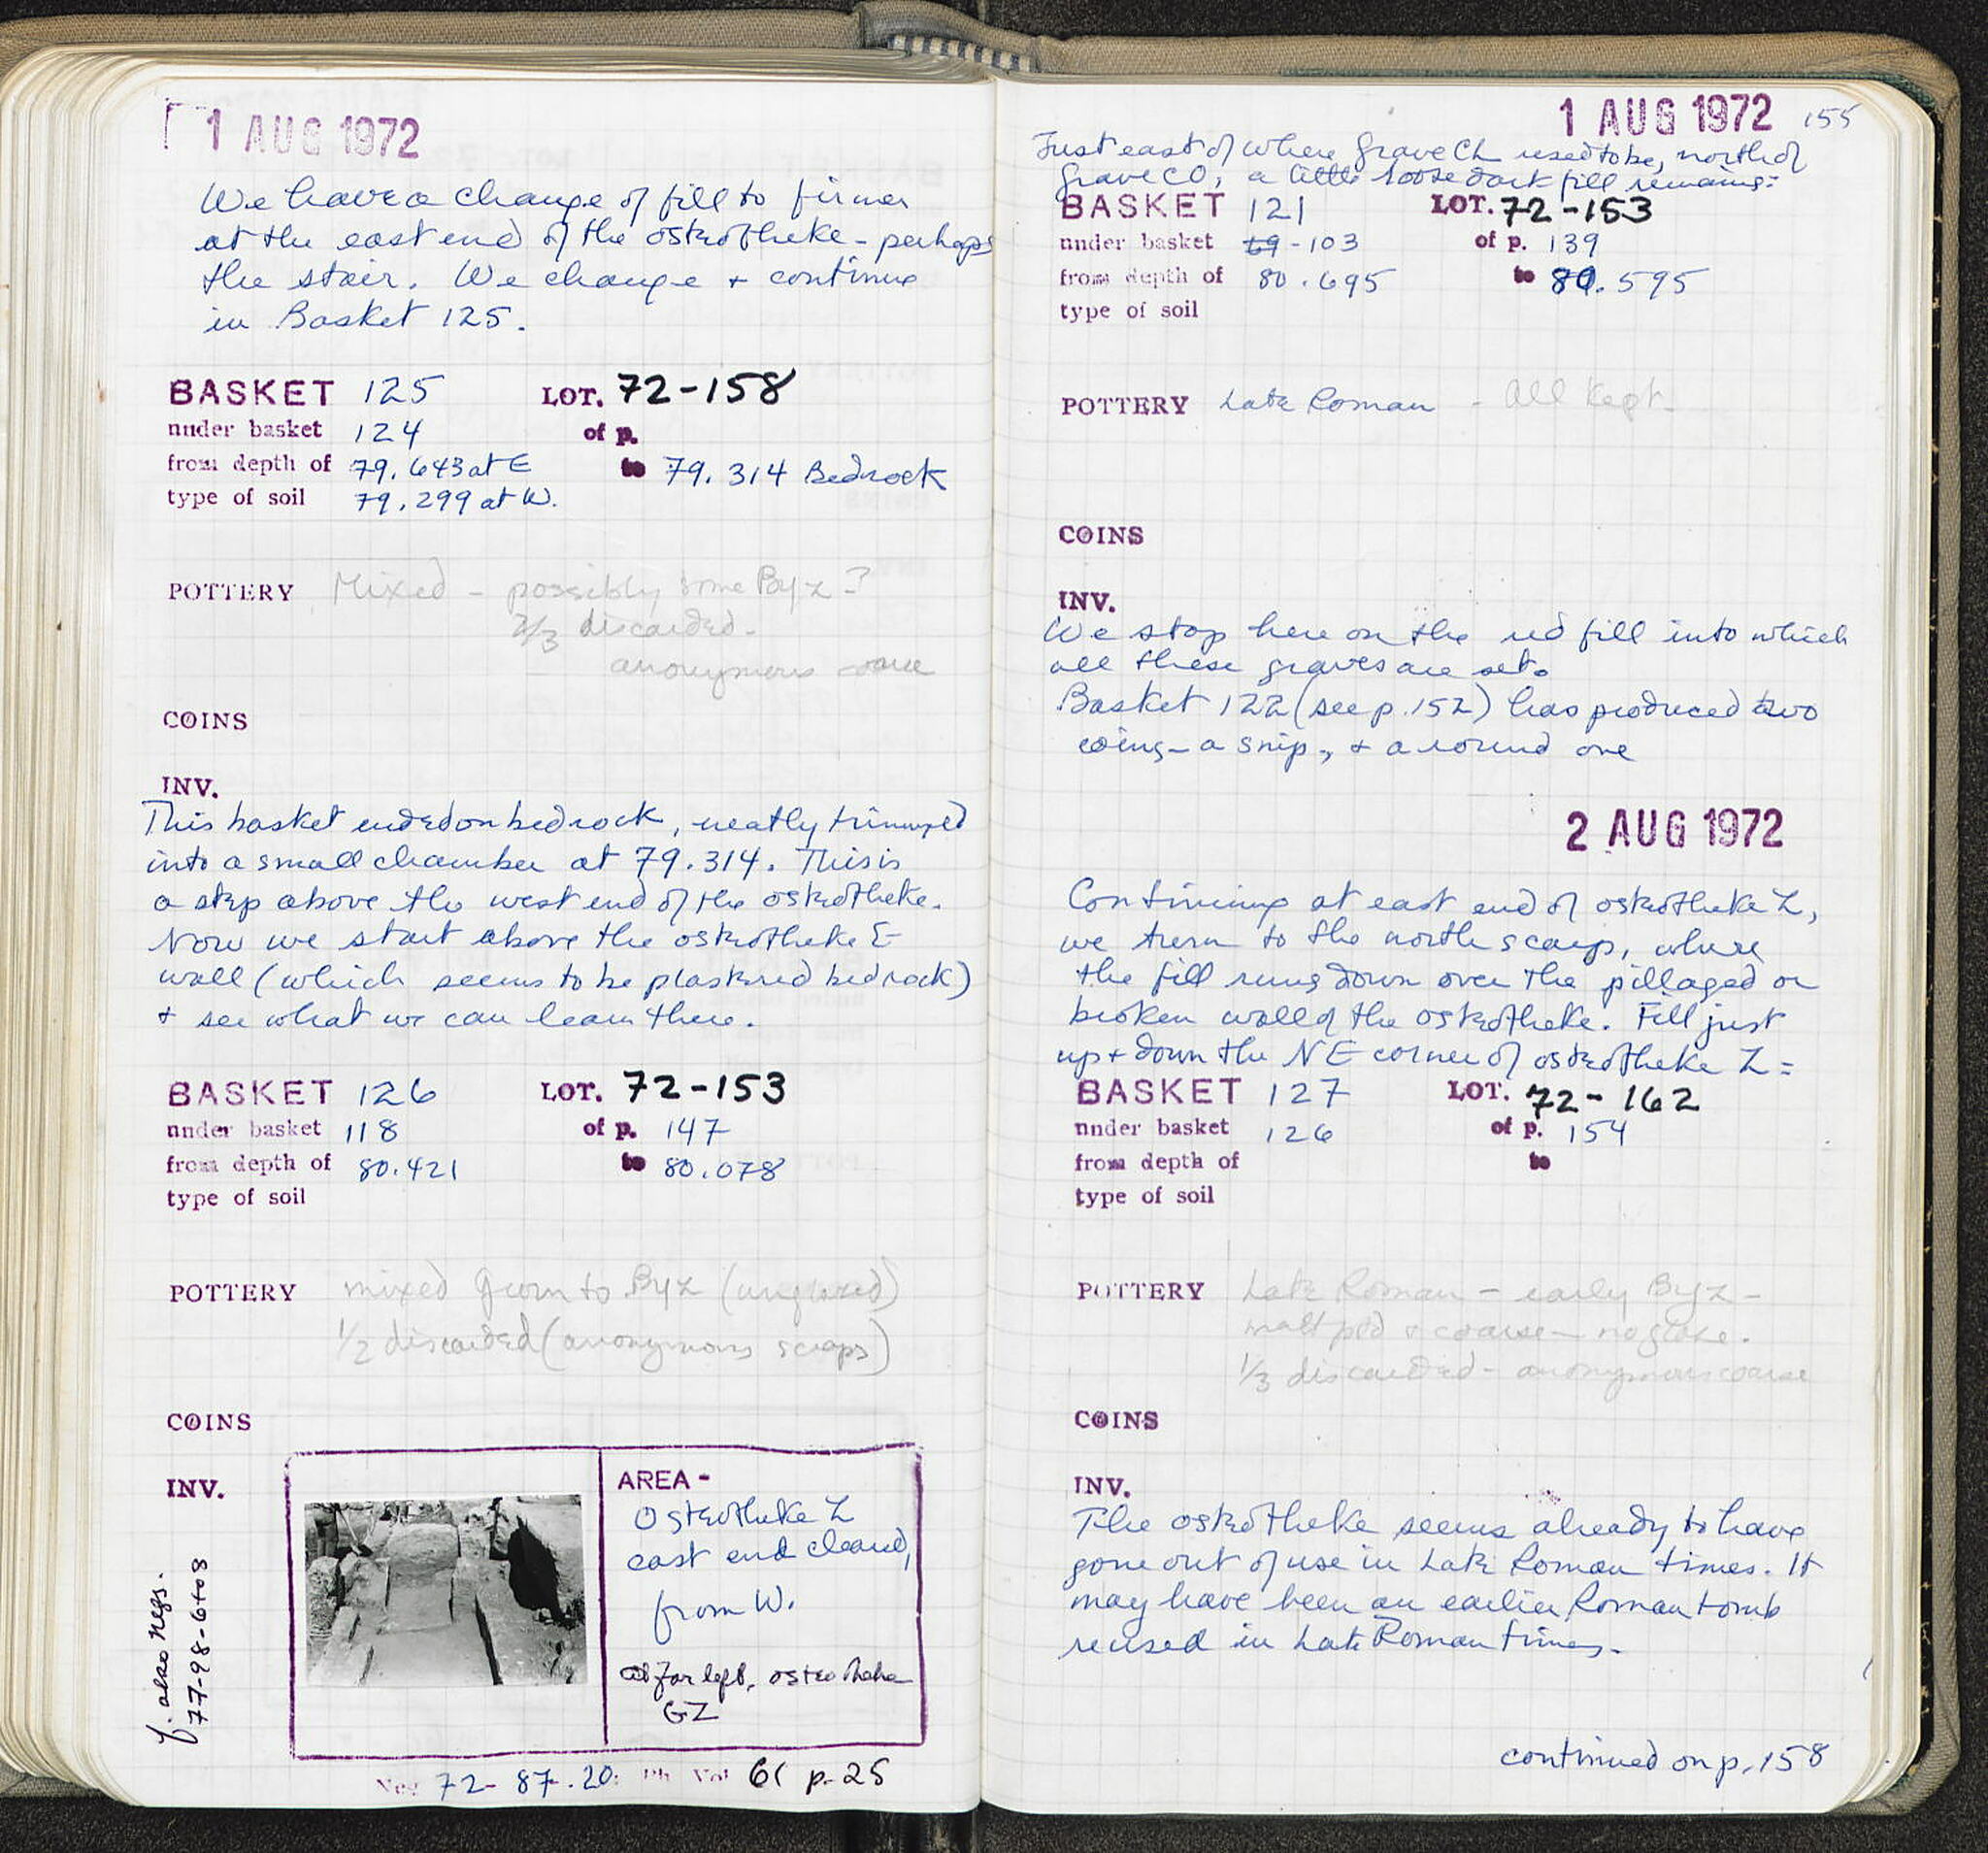 1 AUG 1972
We have a change of fill to firmer
at the east end of the osteotheke - perhaps
the stair. We change + continue
in Basket 125.
BASKET 125 LOT. 72-158
under basket 124 of p.
from depth of 79.643 at E to 79.314 Bedrock
type of soil 79.299 at W.
POTTERY Mixed - possibly some Byz?
2/3 discarded.
anonymous coarse
COINS
INV.
This basket ended on bedrock, neatly trimmed
into a small chamber at 79.314. This is
a step above the west end of the osteotheke.
Now we start above the osteotheke E
wall (which seems to be plastered bedrock)
+ see what we can learn there.
BASKET 126 LOT. 72-153
under basket 118 of p. 147
from depth of 80.421 to 80.078
type of soil
POTTERY mixed down to Byz (unglazed)
1/2 discarded (anonymous scraps)
COINS
INV.
AREA -
Osteotheke Z
east end cleared,
from W.
at far left, osteotheke
GZ
cf. also negs.
77-98-6+08
Neg 72-87.20: Ph Vol 61 p.25
1 AUG 1972 155
Just east of where Grave CL used to be, north of
Grave CO, a little loose dark fill remains:
BASKET 121 LOT. 72-153
under basket 69-103 of p. 139
from depth of 80.695 to 80.595
type of soil
POTTERY Late Roman - All kept
COINS
INV.
We stop here on the red fill into which
all these graves are set.
Basket 122 (see p. 152) has produced two
coins - a snip, + a round one
2 AUG 1972
Continuing at east end of osteotheke Z,
we turn to the north scarp, where
the fill runs down over the pillaged or
broken wall of the osteotheke. Fill just
up + down the NE corner of osteotheke Z =
BASKET 127 LOT. 72-162
under basket 126 of p. 154
from depth of to
type of soil
POTTERY Late Roman - early Byz -
matt ptd + coarse - no glaze.
1/3 discarded - anonymous coarse
COINS
INV.
The osteotheke seems already to have
gone out of use in Late Roman times. It
may have been an earlier Roman tomb
reused in Late Roman times.
continued on p. 158